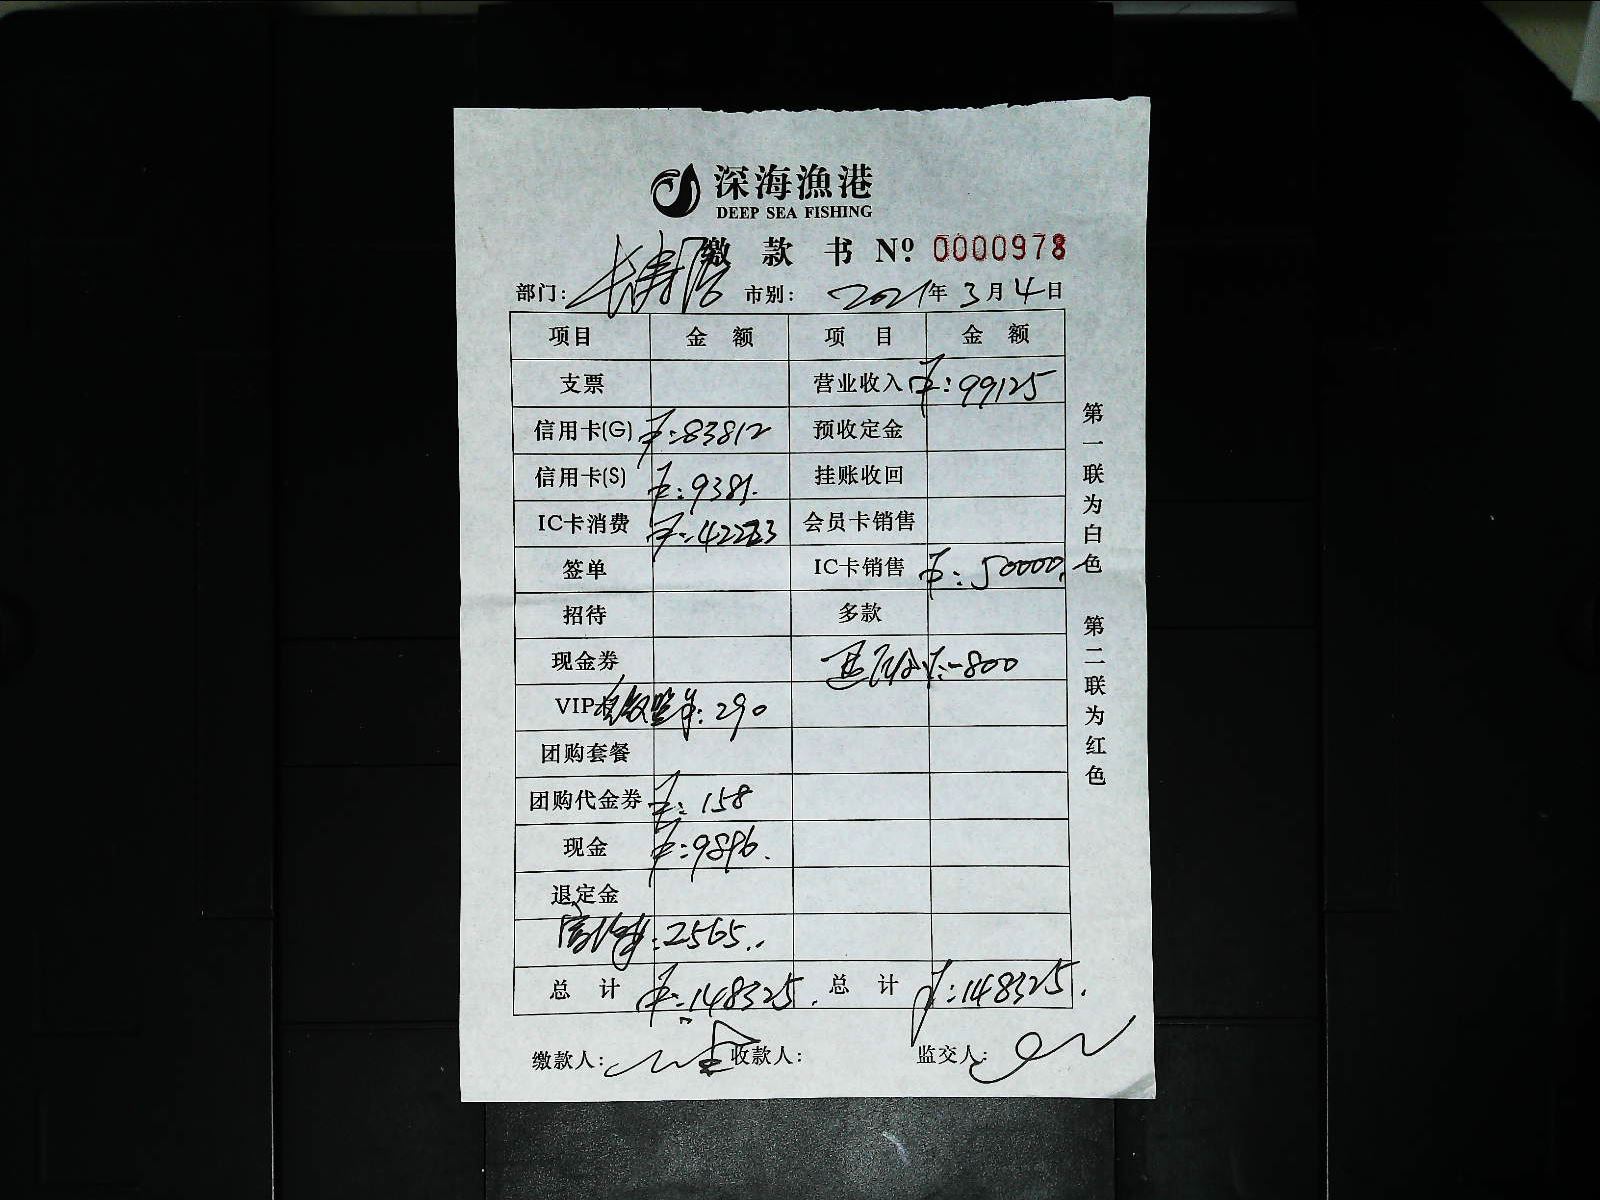 深海渔港
DEEP SEA FISHING
缴款书 Nº 0000978
部门: 长寿店 市别: 2021年3月4日
项目 金额 项目 金额
支票 营业收入 ¥:99125
信用卡(G) ¥:83812 预收定金
信用卡(S) ¥:9381. 挂账收回
IC卡消费 ¥:42223 会员卡销售
签单 IC卡销售 ¥:50000.
招待 多款
现金券 ¥:-800
VIP ¥:290
团购套餐
团购代金券 ¥:158
现金 ¥:9896.
退定金
¥:2565..
总计 ¥:148325. 总计 ¥:148325.
缴款人: 收款人: 监交人:
第一联为白色 第二联为红色